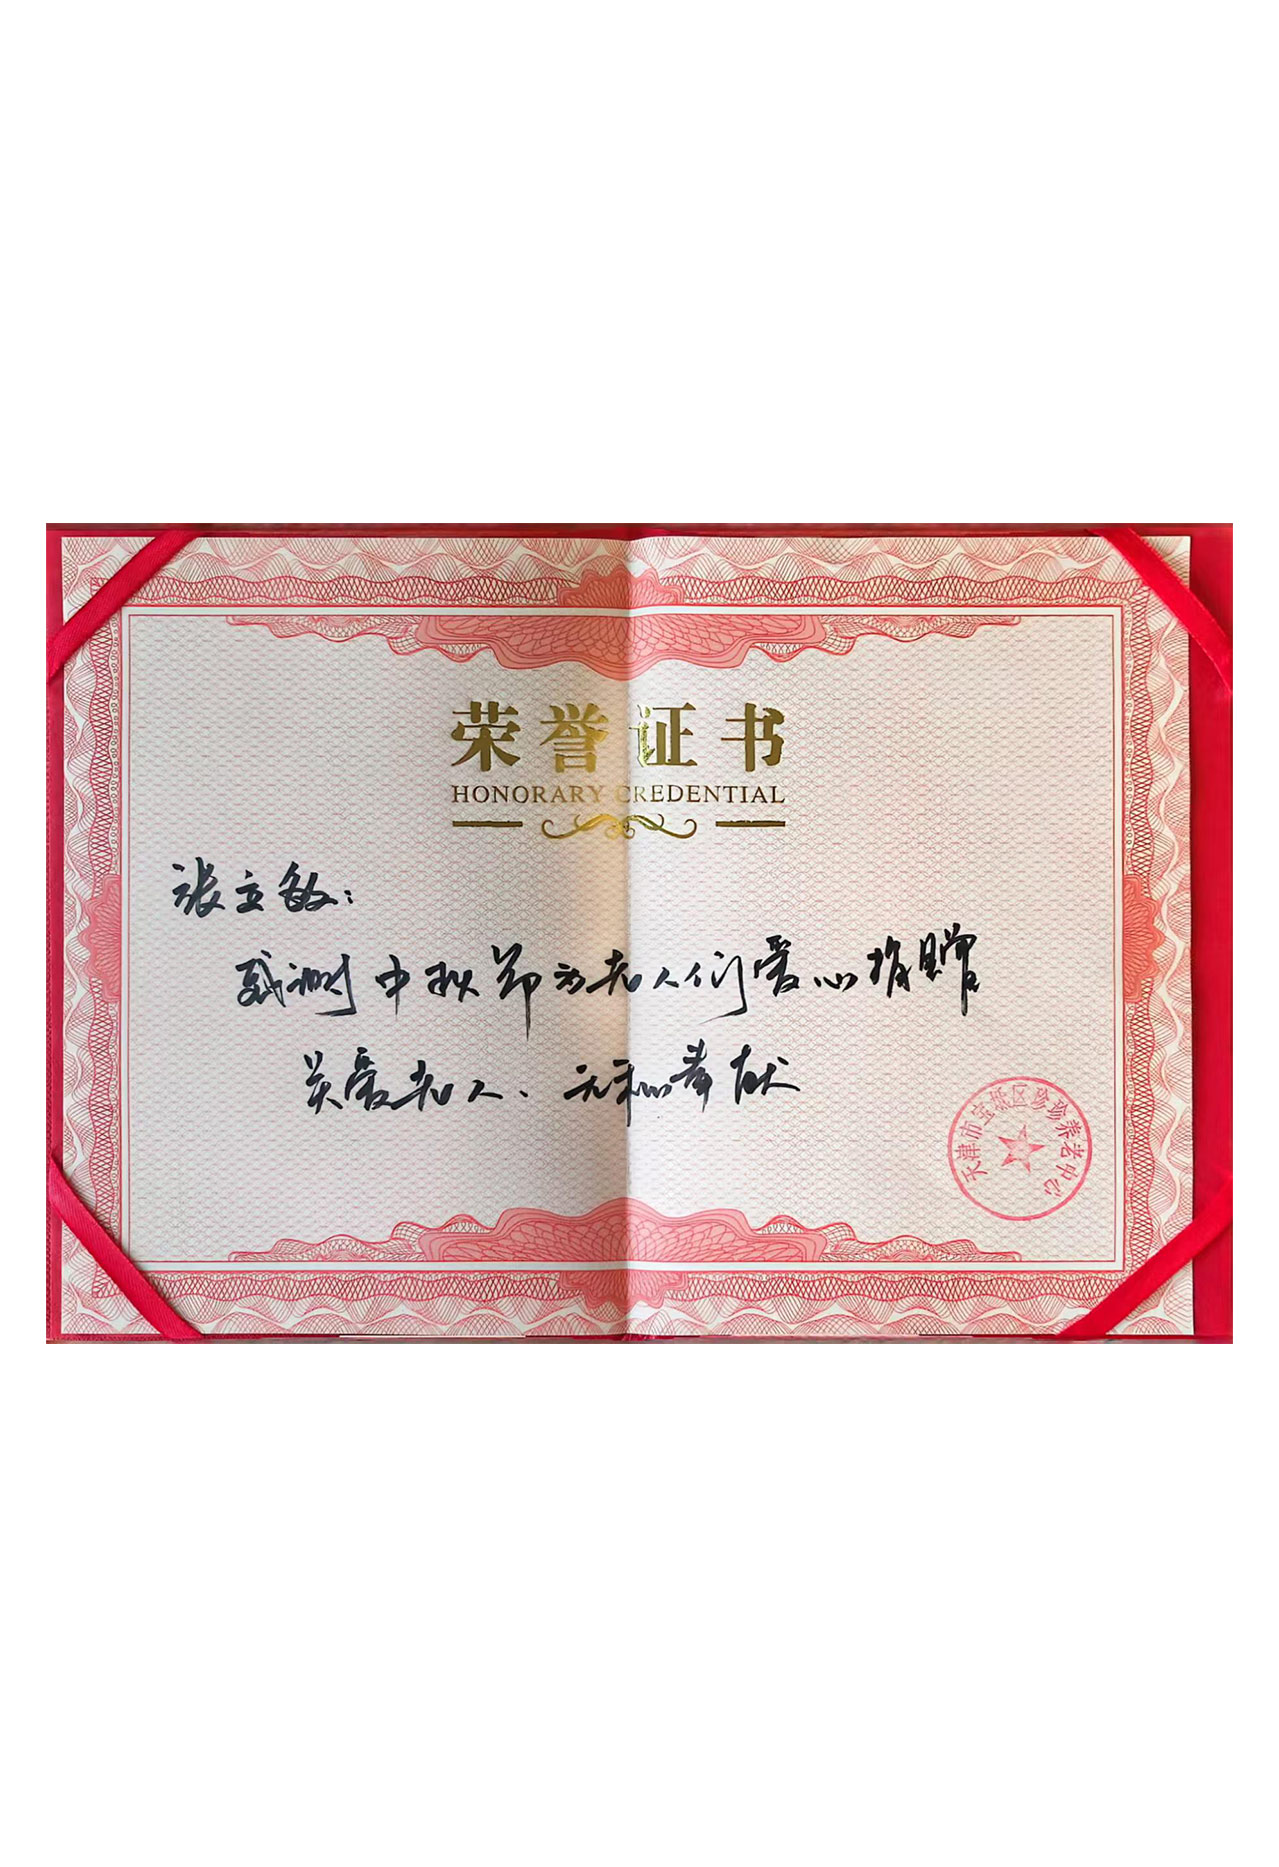 荣誉证书
HONORARY CREDENTIAL
张立敏:
感谢中秋节为老人们爱心捐赠
关爱老人、无私奉献
天津市宝坻区珍珍养老中心